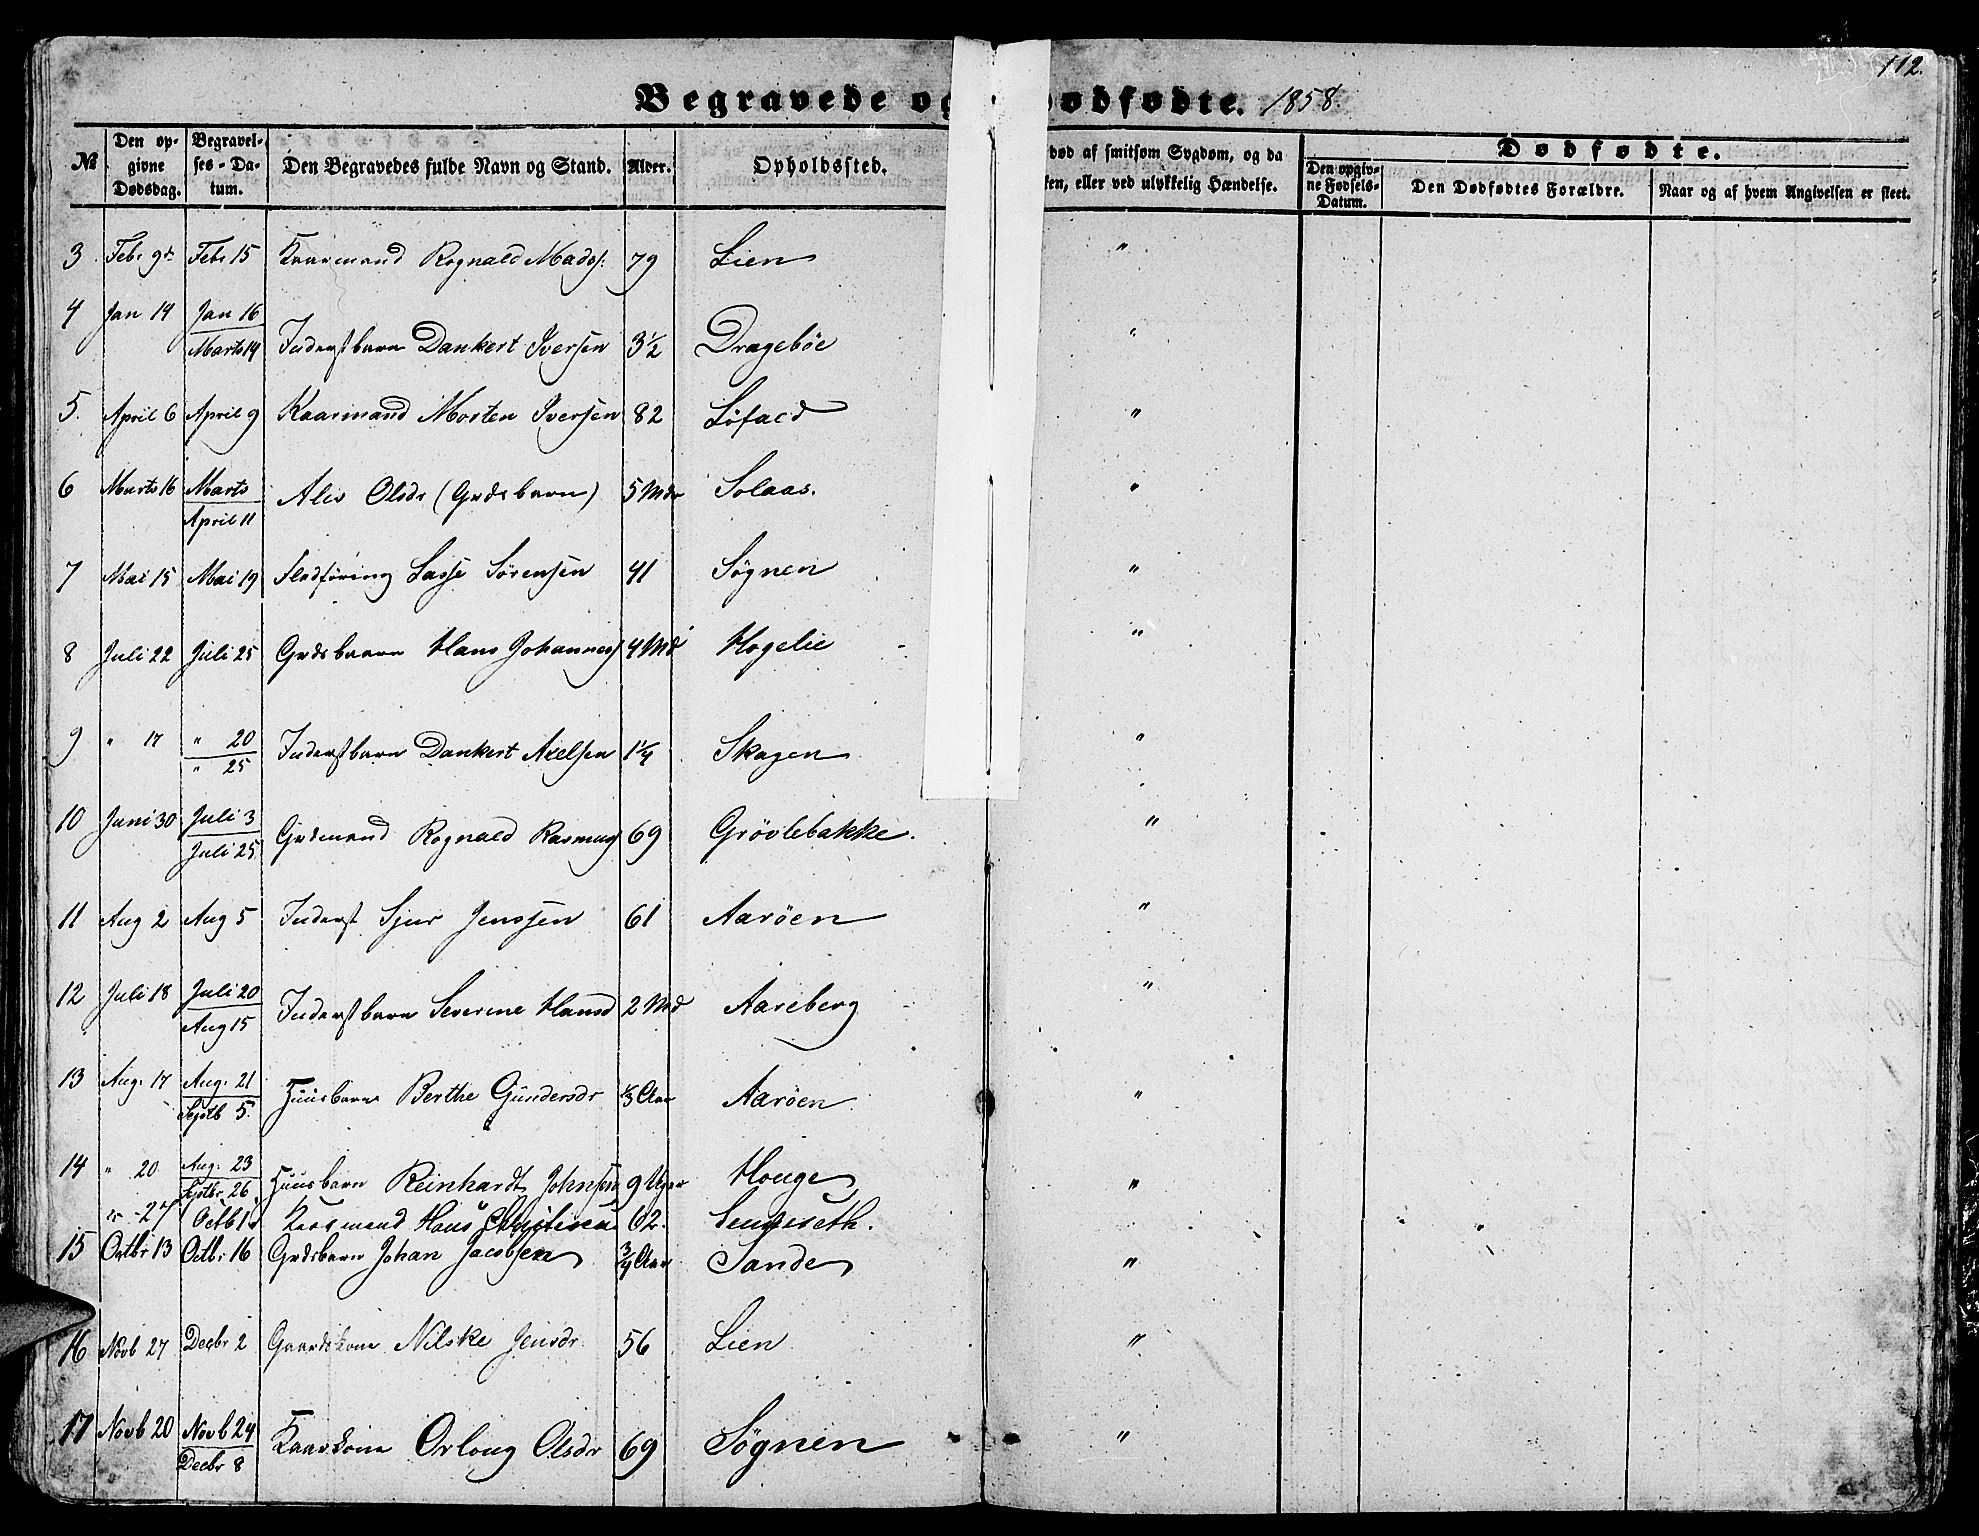 112.
Begravede og Dødfødte. 1858.
№ Den op- givne Dødsdag. Begravel- ses-Da- tum. Den Begravedes fulde Navn og Stand. Alder. Opholdssted. død af smitsom Sygdom, og da
en, eller ved ulykkelig Hændelse. Dødfødte.
Den opgiv- ne Fødsels- Datum. Den Dødfødtes Forældre. Naar og af hvem Angivelsen er skeet.
3 Febr 9d. Febr 15 Kaarmand Rognald Mads. 79 Lien "
4 Jan 14 Jan 16
Marts 14 Inderstbarn Dankert Iversen 3½ Dragebøe "
5. April 6 April 9 Kaarmand Morten Iversen 82 Løfald "
6 Marts 16 Marts
April 11 Ales Olsdr (Grdsbarn) 5 Mdr Solaas. "
7 Mai 15 Mai 19 Fladføring Lasse Sørensen 41 Søgnen "
8 Juli 22 Juli 25 Grdsbarn Hans Johannes 4 Md Hogelie "
9 " 17 " 20
" 25 Inderstbarn Dankert Axelsen 1¼ Skagen "
10 Juni 30 Juli 3
Juli 25 Grdmand Rognald Rasmus 69 Grøvlebakke. "
11 Aug 2 Aug 5 Inderst Sjur Jenssen 61 Aarøen "
12 Juli 18 Juli 20
Aug 15 Inderstbarn Severine Hansd 2 Md Aareberg "
13 Aug. 17 Aug. 21
Septb 5. Huusbarn Berthe Gundersdr ⅓ Aar Aarøen "
14 " 20 Aug. 23
Septbr 26 Huusbarn Reinhardt Johnsen 9 Uger Houge "
" - 27 Octb 1 Kaarmand Hans 62.
15 Octbr 13 Octbr 16 Grdsbarn Johan Jacobsen ¾ Aar Sande "
16 Novb 27 Decbr 2 Gaardskone Nilske Jensdr 56 Lien "
17 Novb 20 Novb 24
Decbr 8 Kaarkone Orloug Olsdr 69 Søgnen "